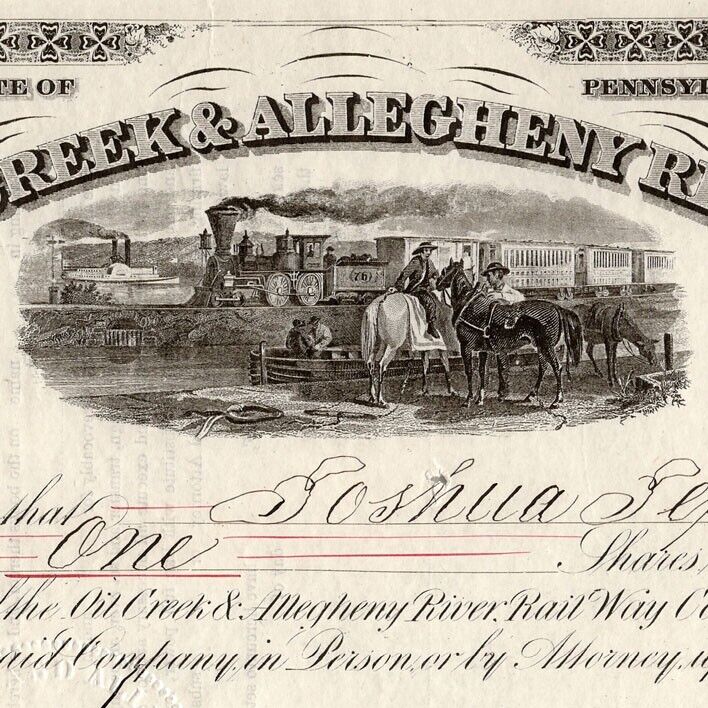 TE OF PENNSYL
CREEK & ALLEGHENY RI
76
that Joshua
One Shares,
the Oil Creek & Allegheny River Rail Way Co
aid Company, in Person, or by Attorney, up